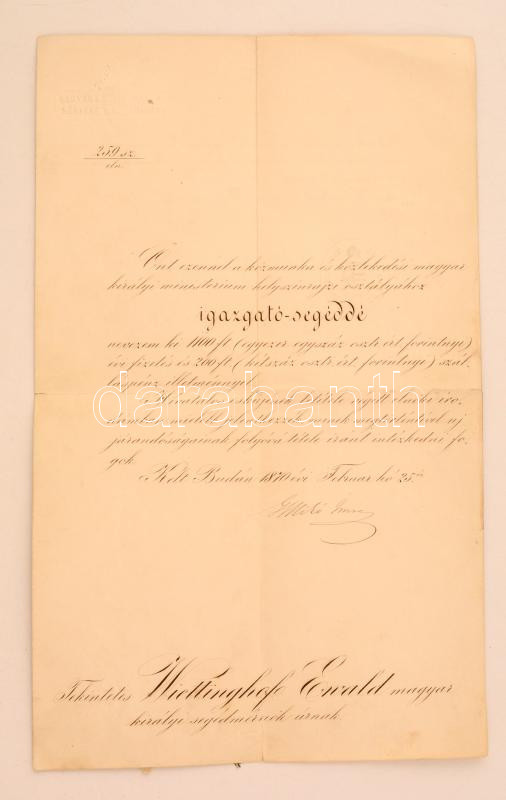 259 sz.
eln.
Önt ezennel a közmunka és közlekedési magyar
királyi ministerium helyszinrajzi osztályához
igazgató-segéddé
nevezem ki 1100 ft (egyezer egyszáz osztr. ért. forintnyi)
évi fizetés és 200 ft. (kétszáz osztr. ért. forintnyi) szál-
láspénz illetményével
A hivatalos eskünek letétele végett elnöki iro-
dámban
járandóságainak folyóvá tétele iránt intézkedni fo-
gok.
Kelt Budán 1870 évi Februar hó 25.én
G Mikó Imre
Tekintetes Wiettinghofe Ewald magyar
királyi segédmérnök úrnak.
darabanth